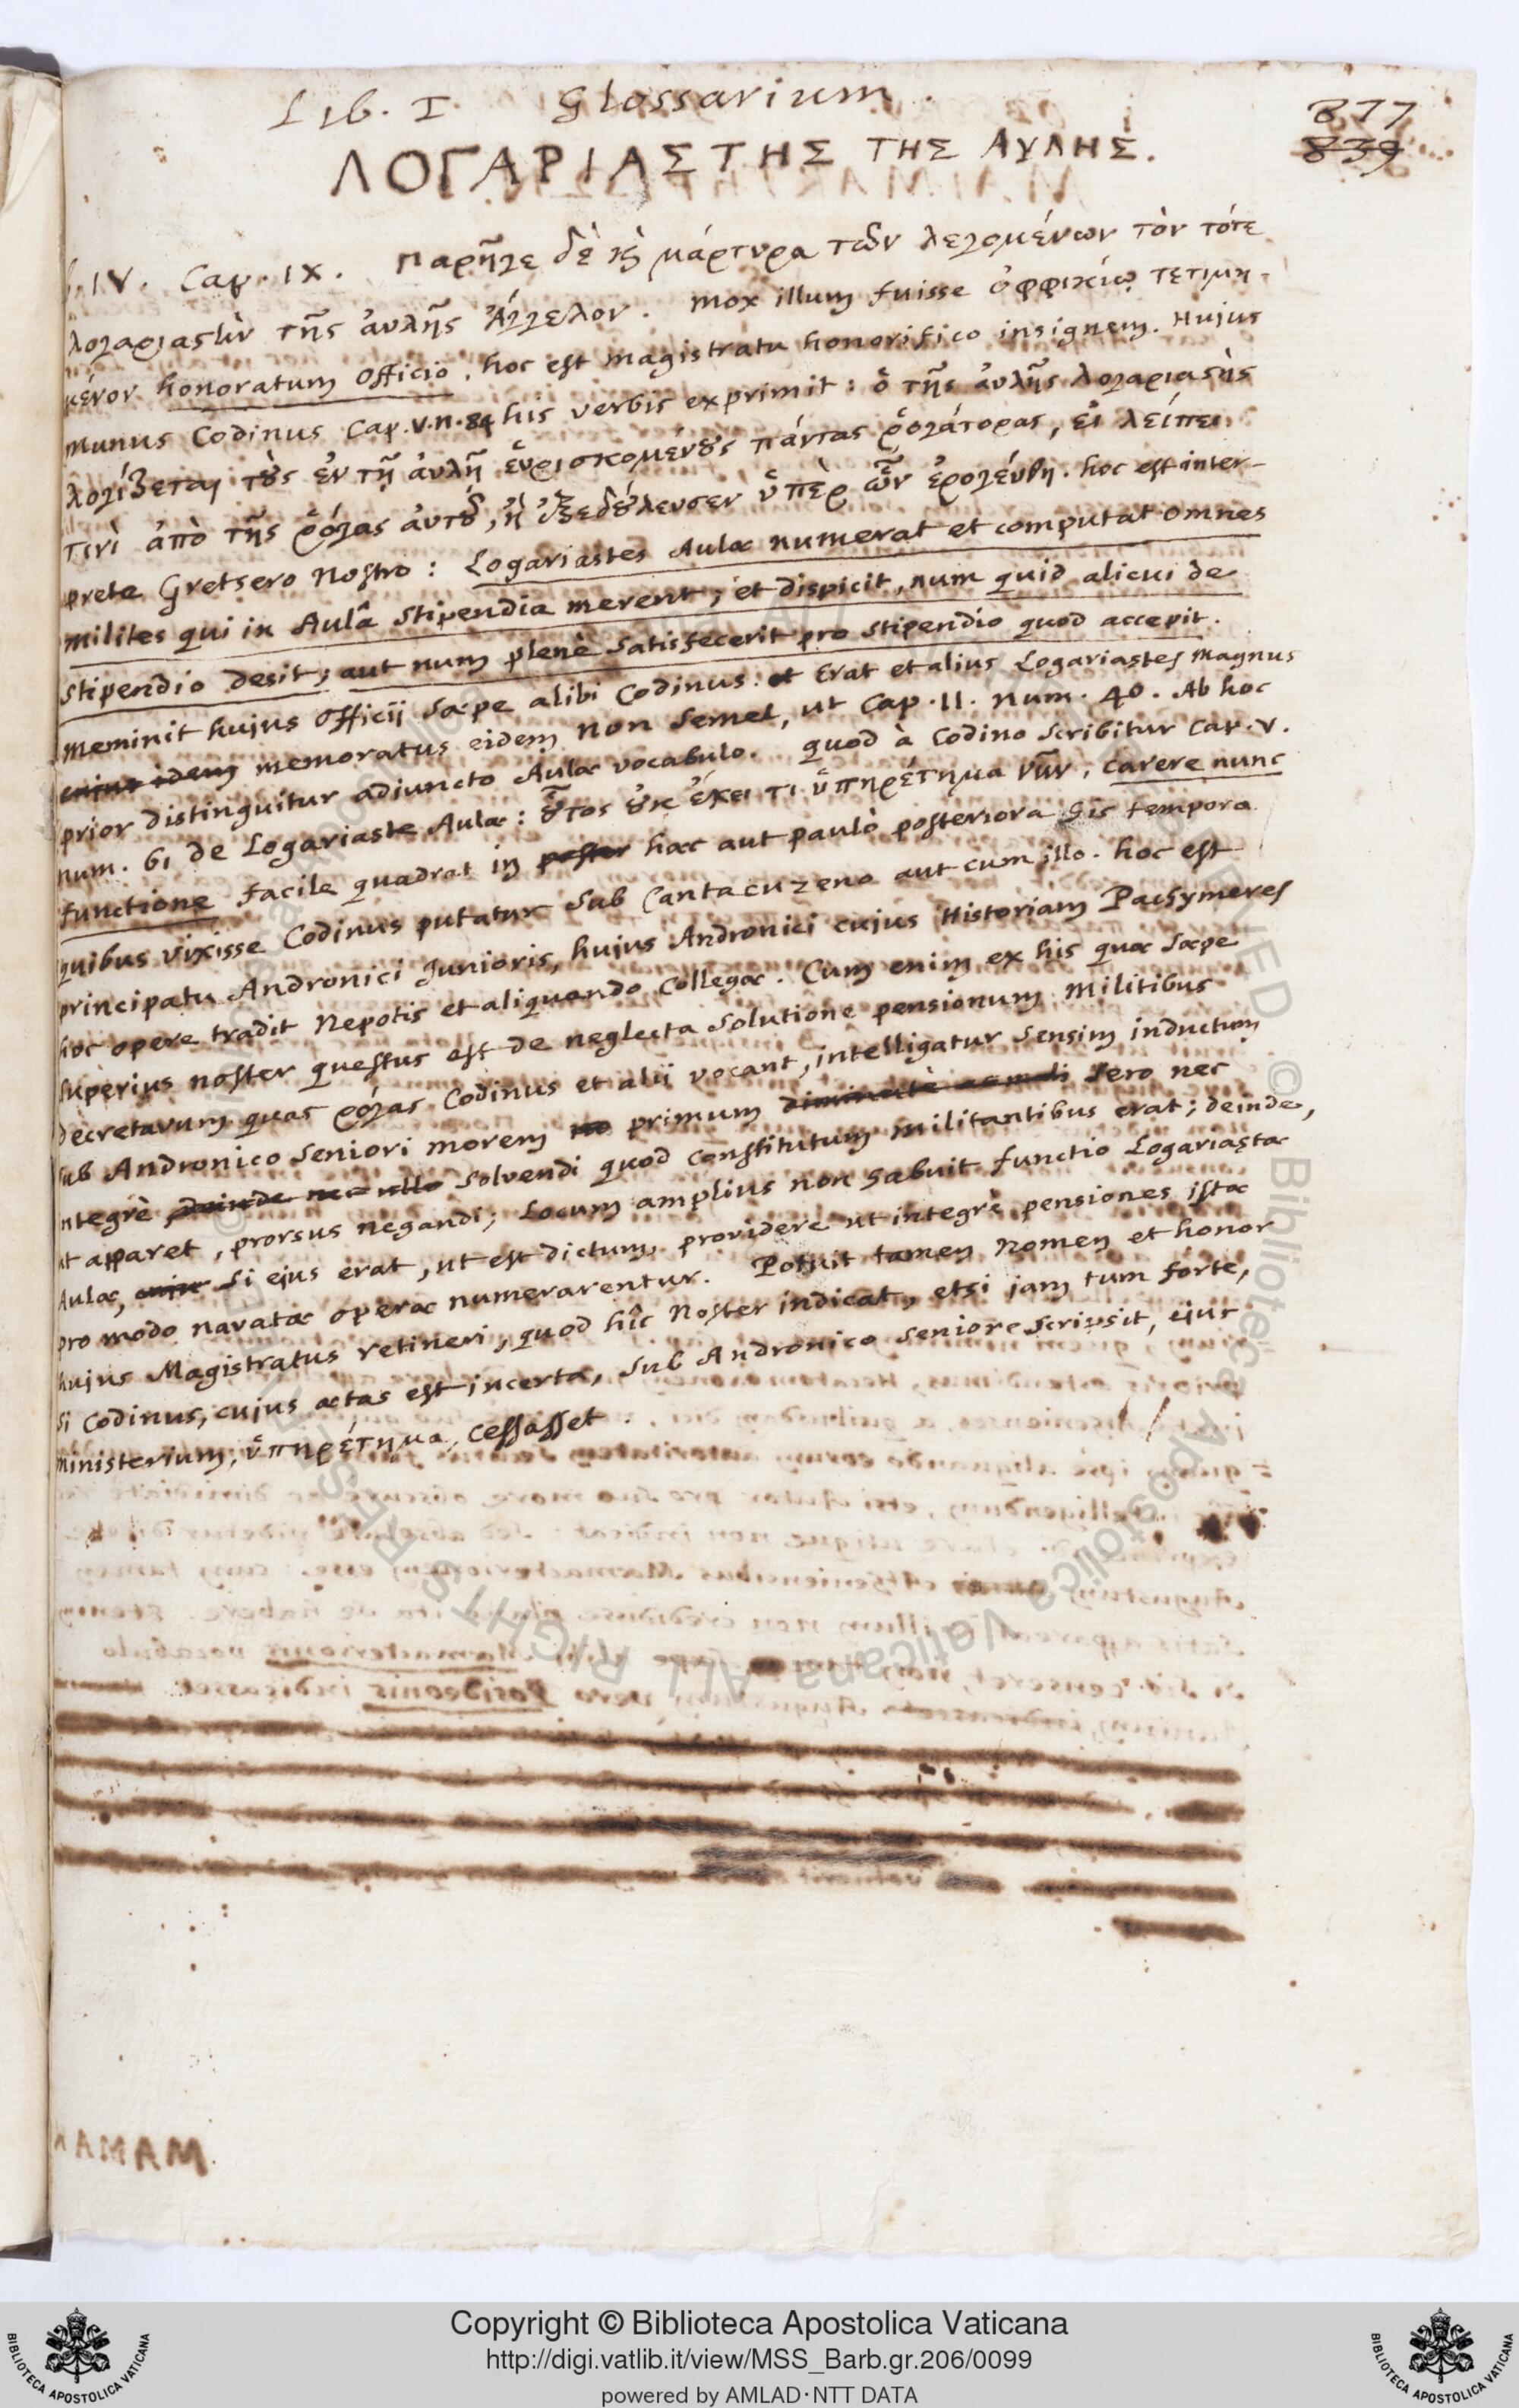 Lib. I Glossarium.
877
839
ΛΟΓΑΡΙΑΣΤΗΣ ΤΗΣ ΑΥΛΗΣ.
l. IV. Cap. IX. Παρῆγε δὲ καὶ μάρτυρα τῶν λεγομένων τὸν τότε
λογαριαστὴν τῆς ἀυλῆς Ἄγγελον. mox illum fuisse ὀφφικίῳ τετιμη-
μένον honoratum officio, hoc est magistratu honorifico insignem. Hujus
munus Codinus Cap. V. n. 84 his verbis exprimit: ὁ τῆς ἀυλῆς λογαριαστὴς
λογίζεται τοὺς ἐν τῇ ἀυλῇ ἑυρισκομένους πάντας ῥογάτορας, εἰ λείπει
τινὶ ἀπὸ τῆς ῥόγας ἀυτοῦ, ἢ ἐξεδούλευσεν ὑπὲρ ὧν ἐρογέυθη. hoc est inter-
prete Gretsero Nostro: Logariastes Aulae numerat et computat omnes
milites qui in Aulâ stipendia merent; et dispicit, num quid alicui de
stipendio desit; aut num plenè satisfecerit pro stipendio quod accepit.
meminit hujus officij saepe alibi Codinus: et Erat et alius Logariastes magnus
cujus idem memoratus eidem non semel, ut Cap. II. num. 40. Ab hoc
prior distinguitur adjuncto Aulae vocabulo. quod à Codino scribitur Cap. V.
num. 61 de Logariaste Aulae: οὗτος οὐκ ἔχει τι ὑπηρέτημα νῦν, carere nunc
functione facile quadrat in poster haec aut paulò posteriora his tempora
quibus vixisse Codinus putatur sub Cantacuzeno aut cum illo. hoc est
principatu Andronici Junioris, hujus Andronici cujus Historiam Pachymeres
hoc opere tradit Nepotis et aliquando Collegae. Cum enim ex his quae saepe
superius noster questus est de neglecta solutione pensionum militibus
decretarum quas ῥόγας Codinus et alii vocant, intelligatur sensim inductum
sub Andronico seniori morem no primum diminutè ac mali sero nec
integrè, deinde nec ullo solvendi quod constitutum militantibus erat; deinde,
ut apparet, prorsus negandi; Locum amplius non habuit functio Logariastae
Aulae, cujus si ejus erat, ut est dictum, providere ut integrè pensiones istae
pro modo navatae operae numerarentur. Potuit tamen nomen et honor
hujus Magistratus retineri, quod hîc Noster indicat, etsi jam tum forte,
si Codinus, cujus aetas est incerta, sub Andronico seniore scripsit, ejus
ministerium, ὑπηρέτημα, cessasset.
Copyright © Biblioteca Apostolica Vaticana
http://digi.vatlib.it/view/MSS_Barb.gr.206/0099
powered by AMLAD·NTT DATA